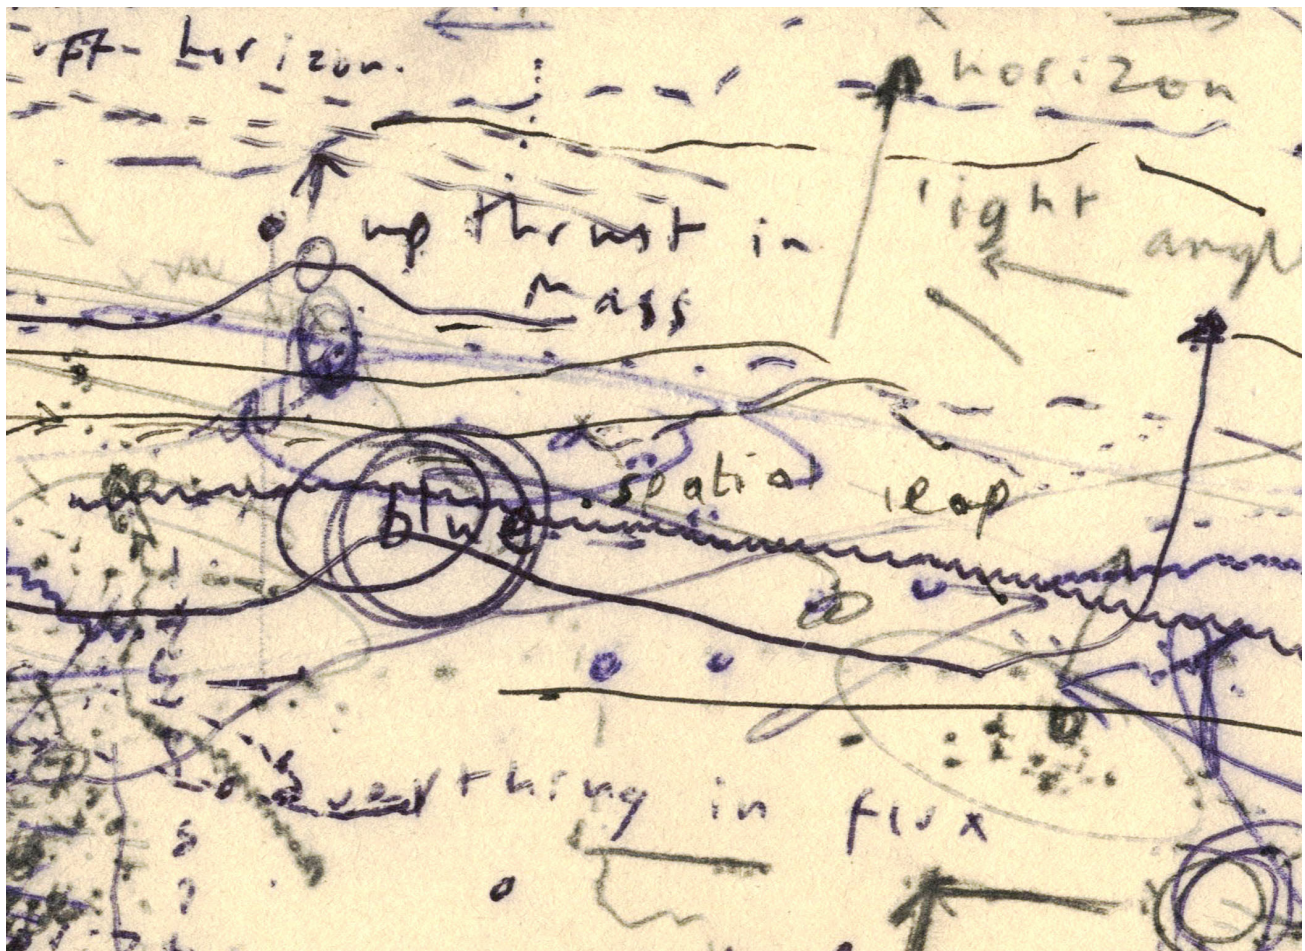 off horizon.
horizon
up thrust in
mass
right
angle
spatial leap
blue
everthing in flux